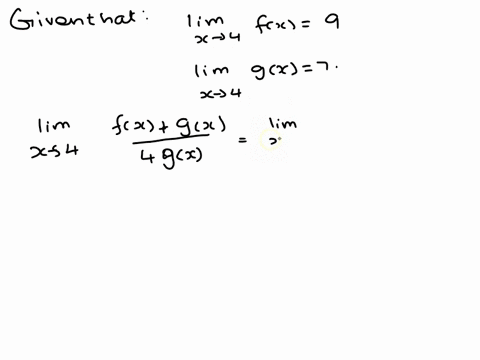 Given that: lim x→4 f(x) = 9
lim x→4 g(x) = 7.
lim x→4 f(x) + g(x) / 4 g(x) = lim x